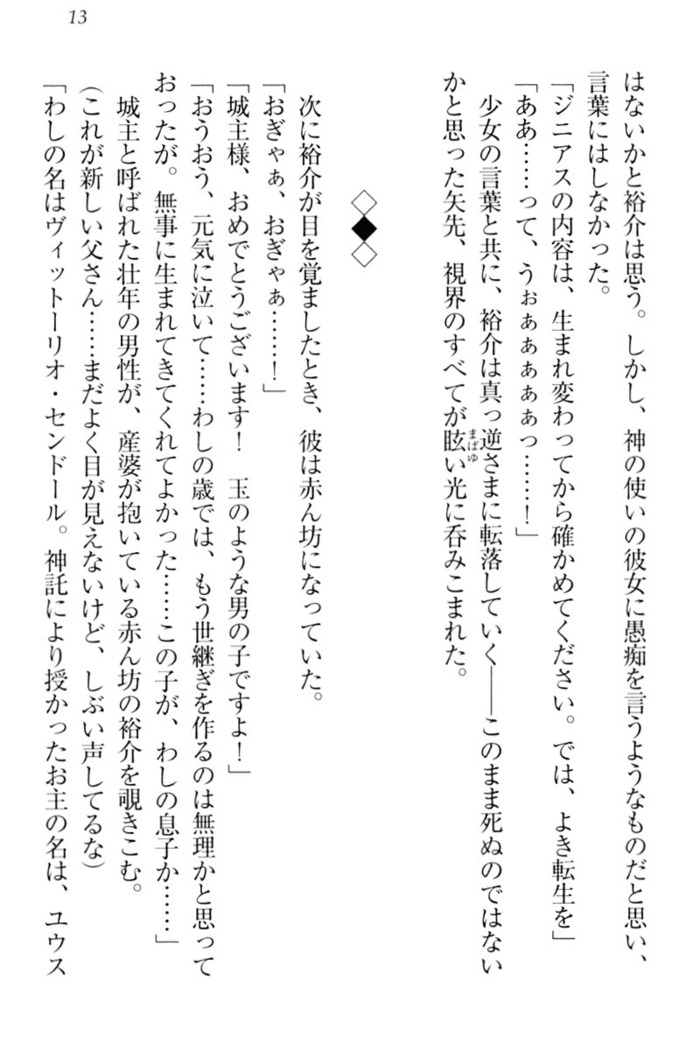 13
はないかと裕介は思う。しかし、神の使いの彼女に愚痴を言うようなものだと思い、
言葉にはしなかった。
「ジニアスの内容は、生まれ変わってから確かめてください。では、よき転生を」
「ああ……って、うぉぁぁぁぁぁっ……！」
少女の言葉と共に、裕介は真っ逆さまに転落していく――このまま死ぬのではない
かと思った矢先、視界のすべてが眩い光に呑みこまれた。
まばゆ
◇◆◇
次に裕介が目を覚ましたとき、彼は赤ん坊になっていた。
「おぎゃぁ、おぎゃぁ……！」
「城主様、おめでとうございます！　玉のような男の子ですよ！」
「おうおう、元気に泣いて……わしの歳では、もう世継ぎを作るのは無理かと思って
おったが。無事に生まれてきてくれてよかった……この子が、わしの息子か……」
城主と呼ばれた壮年の男性が、産婆が抱いている赤ん坊の裕介を覗きこむ。
（これが新しい父さん……まだよく目が見えないけど、しぶい声してるな）
「わしの名はヴィットーリオ・センドール。神託により授かったお主の名は、ユウス